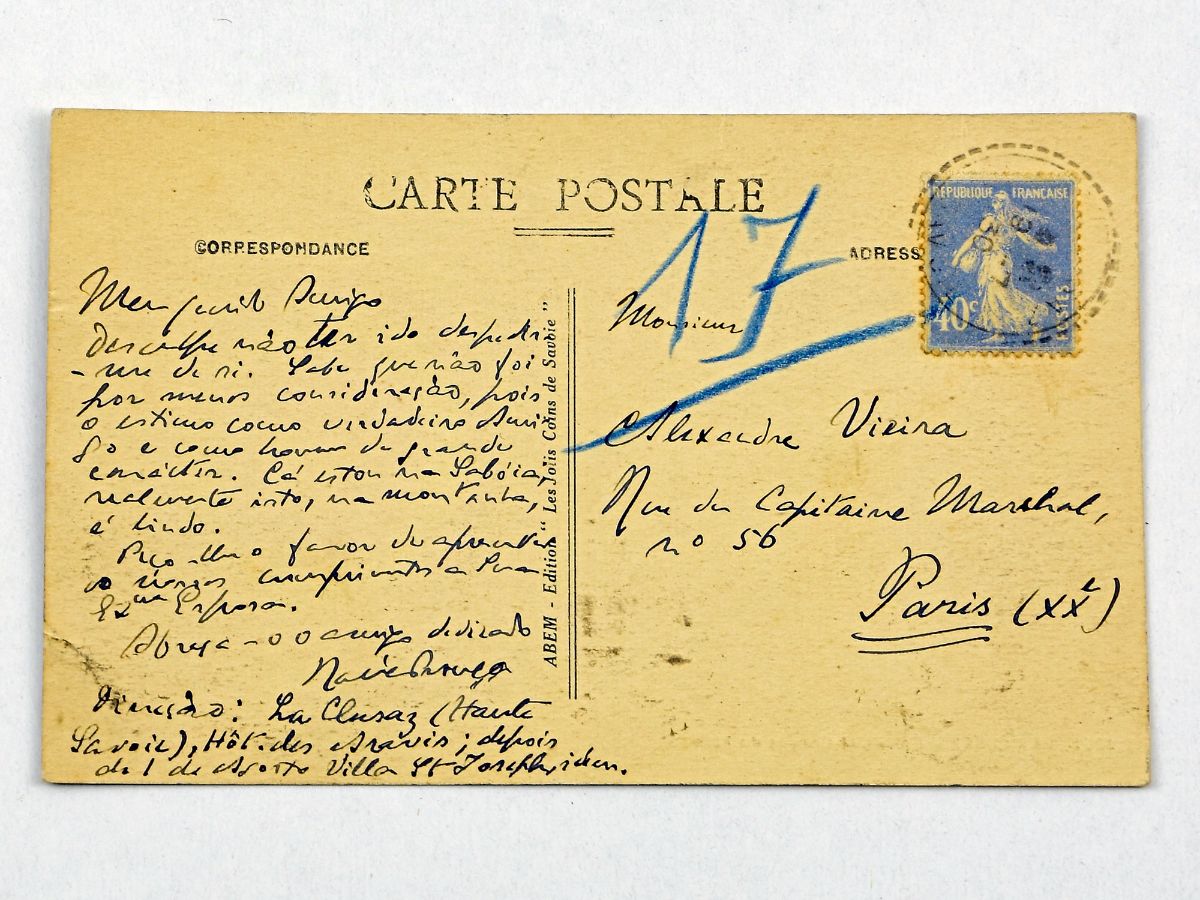 CARTE POSTALE
CORRESPONDANCE
ADRESS
17
REPUBLIQUE FRANÇAISE
40c
POSTES
Meu querido Amigo
Desculpe não ter ido despedir
-me de si. Sabe que não foi
por menos consideração, pois
o estimo como verdadeiro Ami-
go e como homem de grande
carácter. Cá estou na Sabóia,
realmente isto, na montanha,
é lindo.
Peço-lhe o favor de apresentar
os nossos cumprimentos a Sua
Exma Esposa.
Abraça-o o amigo dedicado
Direcção: La Clusaz (Haute
Savoie), Hôt. des Aravis; depois
de 1 de Agosto Villa St Joseph, idem.
ABEM - Edition "Les Jolis Coins de Savoie"
Monsieur
Alexandre Vieira
Rue du Capitaine Marchal,
nº 56
Paris (XXe)